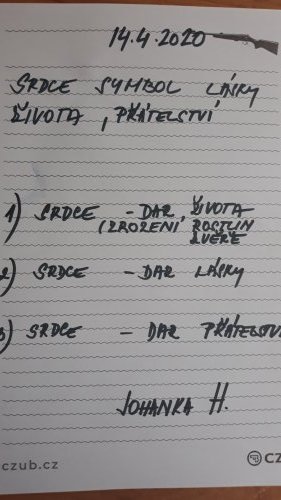 14.4.2020
SRDCE SYMBOL LÁSKY
ŽIVOTA, PŘÁTELSTVÍ
1) SRDCE - DAR ŽIVOTA
(ZROZENÍ, ROSTLIN
ZVĚŘE
2) SRDCE - DAR LÁSKY
3) SRDCE - DAR PŘÁTELSTVÍ
JOHANKA H.
czub.cz
CZ